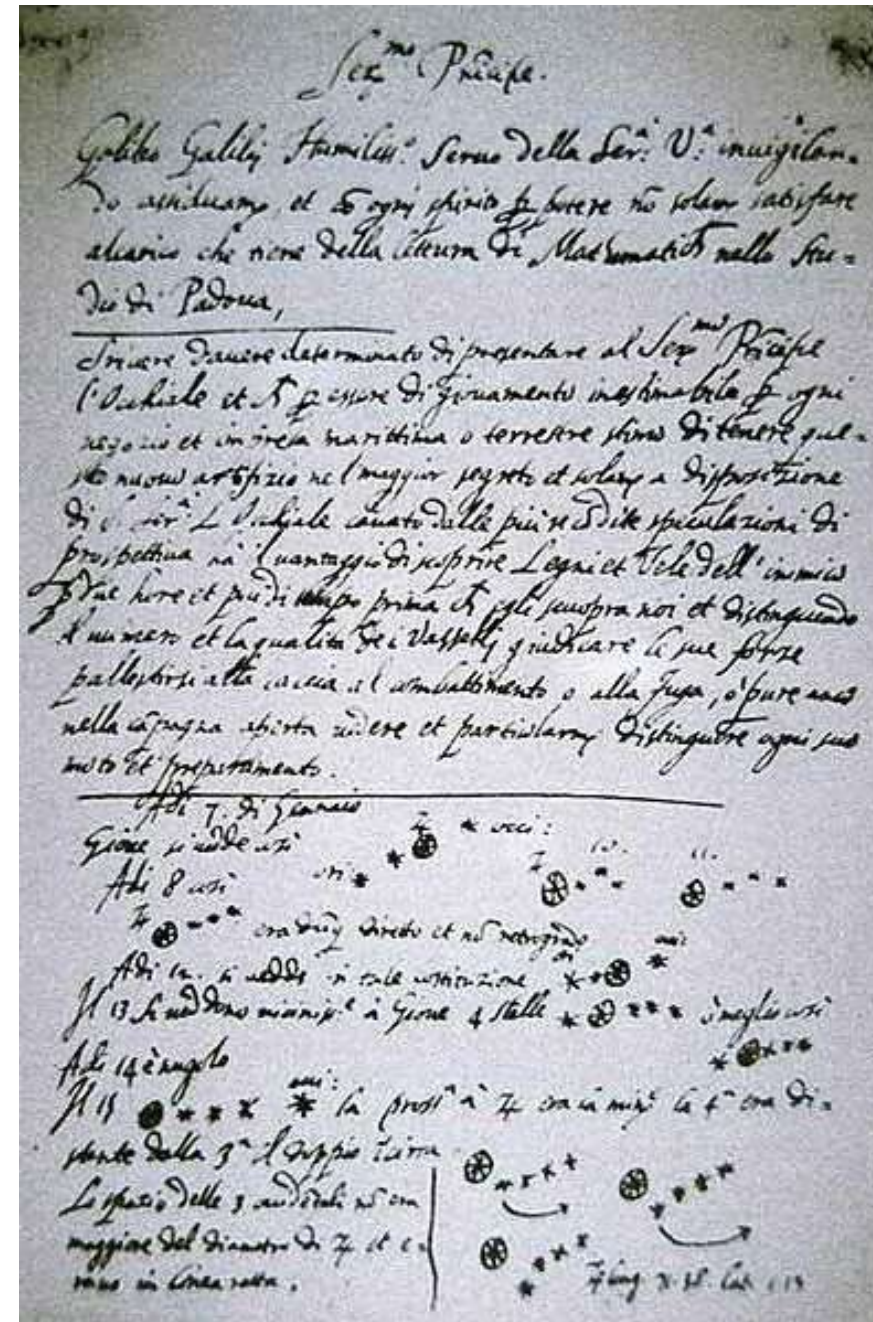 Ser.mo Principe.
Galileo Galilei Humiliss.o Servo della Ser.a V.a invigilan-
do assiduam.e, et cō ogni spirito p potere nō solam.e satisfare
alcarico che tiene della lettura di Mathematich nello Stu-
dio di Padova,
Scrivere davere determinato di presentare al Ser.mo Prīcipe
l'Occhiale et p essere di giovamento inestimabile p ogni
negozio et impresa marittima o terrestre stimo di tenere que-
sto nuovo artifizio nel maggior segreto et solam.e a disposizione
di S. Ser.a L'Occhiale cavato dalle più recōdite speculazioni di
prospettiva hà il vantaggio di scoprire Legni et Vele dell' inimico
p due hore et più di tempo prima ch egli scuopra noi et distinguendo
il numero et la qualità de i Vasselli giudicare le sue forze
pallestirsi alla caccia al combattimento o alla fuga, ò pure anco
nella cāpagna aperta vedere et particolarm.e distinguere ogni suo
moto et preparamento.
Adi 7. di Gennaio
Gione si vedde così
occi:
Adi 8 così
ori
10. 11.
era dūq diretto et nō retrogrado
Adi 12. si vedde in tale costituzione
Il 13 si veddono à Gione 4 stelle ò meglio così
Adi 14 è nugolo
Il 15 la pross.a à ♃ era la min.e la 4.a era di-
stante dalla 3.a il doppio Circa
Lo spazio delle 3 occidētali nō era
maggiore del diametro di ♃ et e-
rano in linea retta.
♃ long.